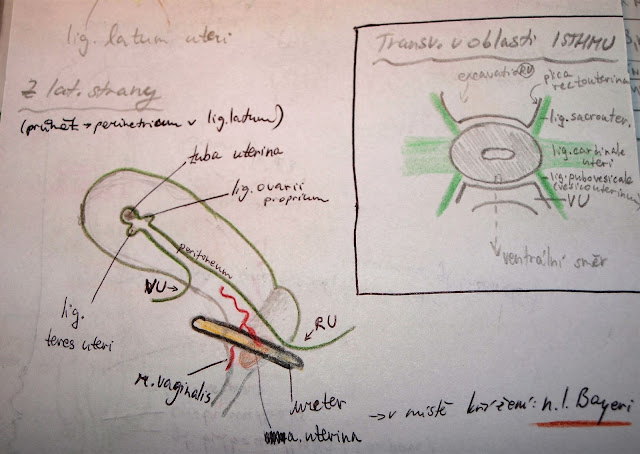 lig. latum uteri
Z lat. strany
(průhåž → perimetrium v lig. latum)
tuba uterina
lig. ovarii
proprium
peritoneum
VU →
lig.
teres uteri
RU
r. vaginalis
ureter
a. uterina
→ v místě křížení: n. l. Bayeri
Transv. v oblasti ISTHMU
excavatio RU
plica
rectouterina
lig. sacrouter.
lig. cardinale
uteri
lig. pubovesicale
(vesicouterinum)
VU
ventrální směr